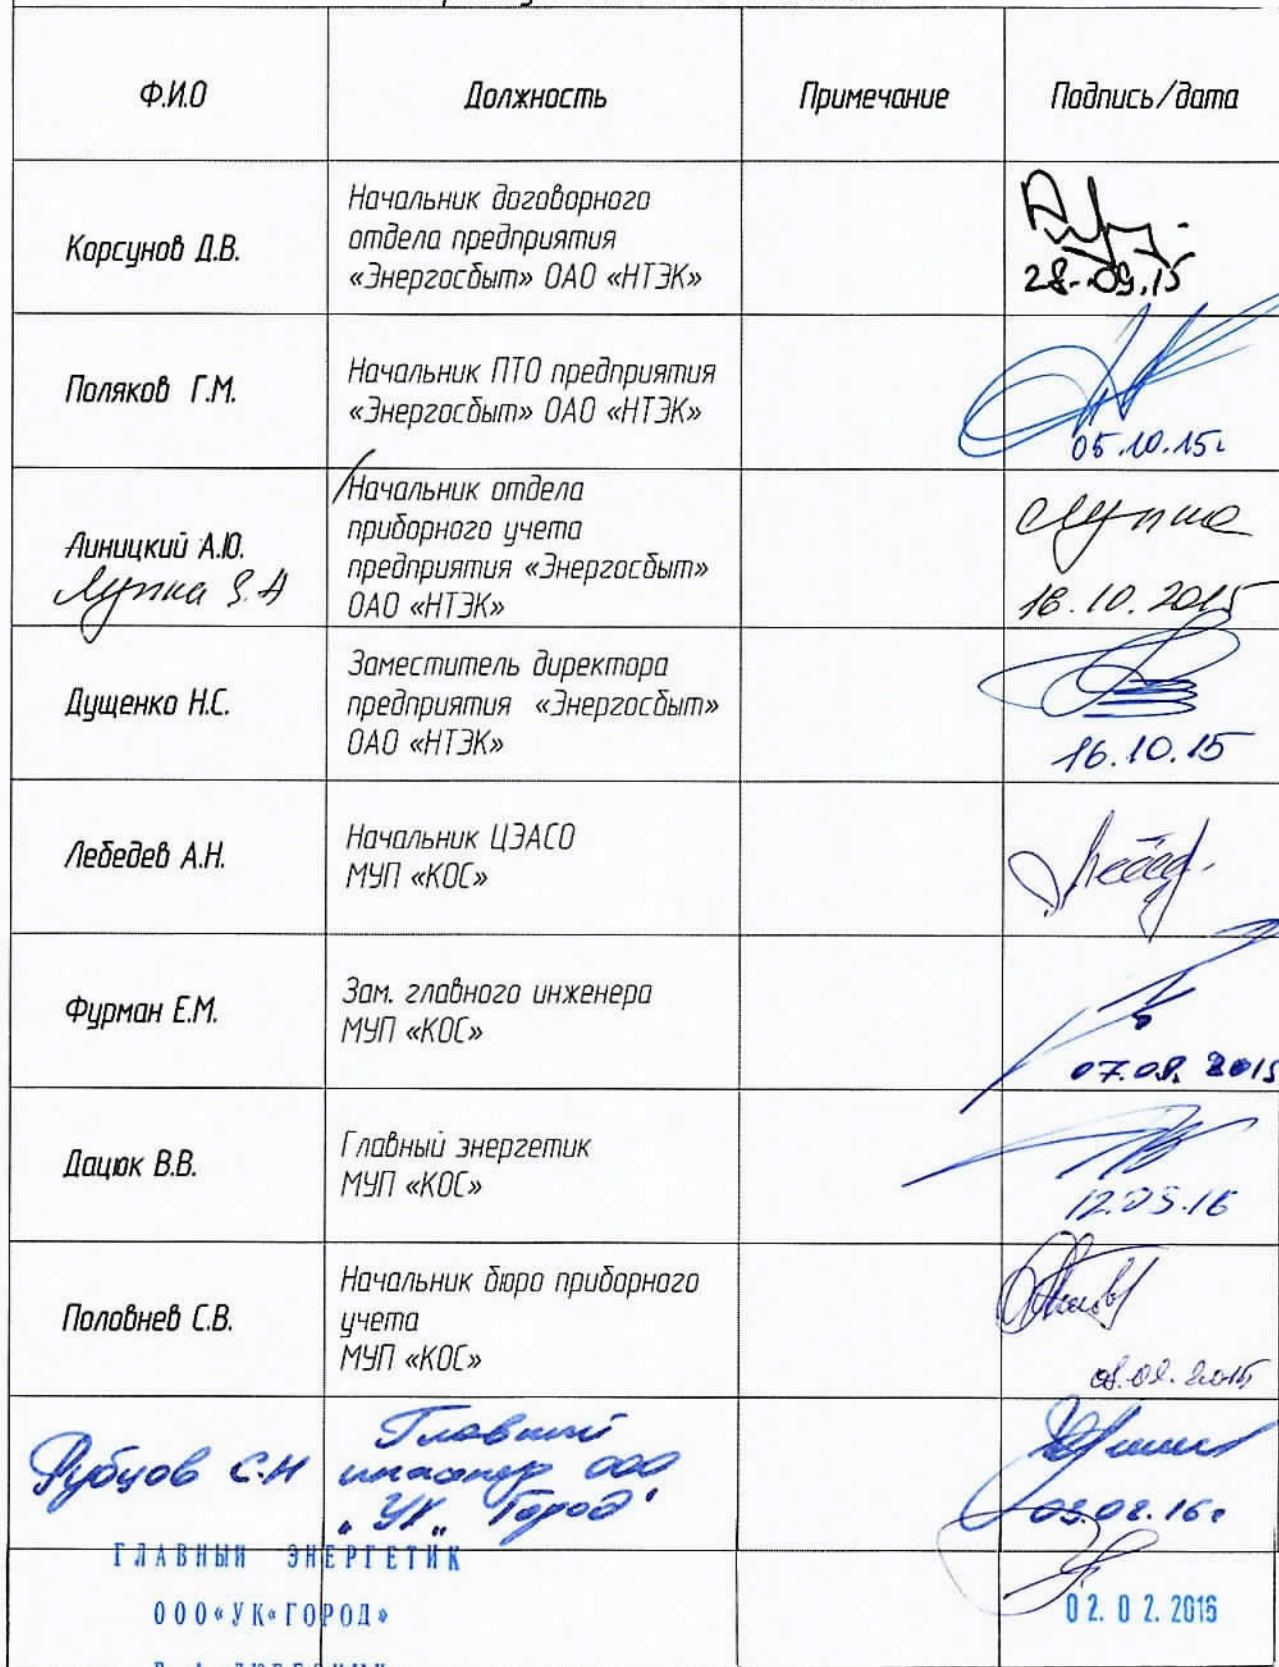 Ф.И.О
Должность
Примечание
Подпись/дата
Корсунов Д.В.
Начальник договорного
отдела предприятия
«Энергосбыт» ОАО «НТЭК»
28.09.15
Поляков Г.М.
Начальник ПТО предприятия
«Энергосбыт» ОАО «НТЭК»
05.10.15г
Линицкий А.Ю.
Лупка З.А
Начальник отдела
приборного учета
предприятия «Энергосбыт»
ОАО «НТЭК»
Лупка
16.10.2015
Дущенко Н.С.
Заместитель директора
предприятия «Энергосбыт»
ОАО «НТЭК»
16.10.15
Лебедев А.Н.
Начальник ЦЭАСО
МУП «КОС»
Фурман Е.М.
Зам. главного инженера
МУП «КОС»
2015
Дацюк В.В.
Главный энергетик
МУП «КОС»
Половнев С.В.
Начальник бюро приборного
учета
МУП «КОС»
Рубцов С.Н
Главный
инженер ООО
"УК" Город"
03.02.16г
ГЛАВНЫЙ ЭНЕРГЕТИК
ООО«УК«ГОРОД»
02.02.2016